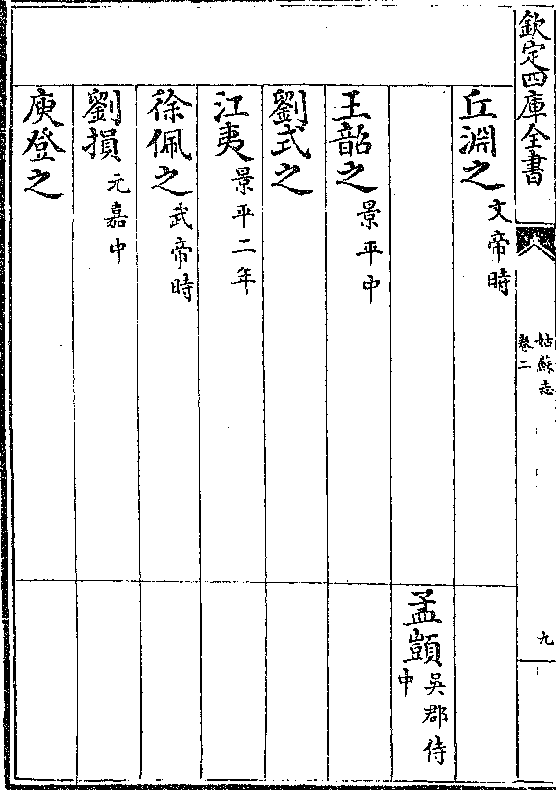 欽定四庫全書
姑蘇志
卷二
九
丘淵之文帝時
孟顗吳郡侍中
王韶之景平中
劉式之
江夷景平二年
徐佩之武帝時
劉損元嘉中
庾登之